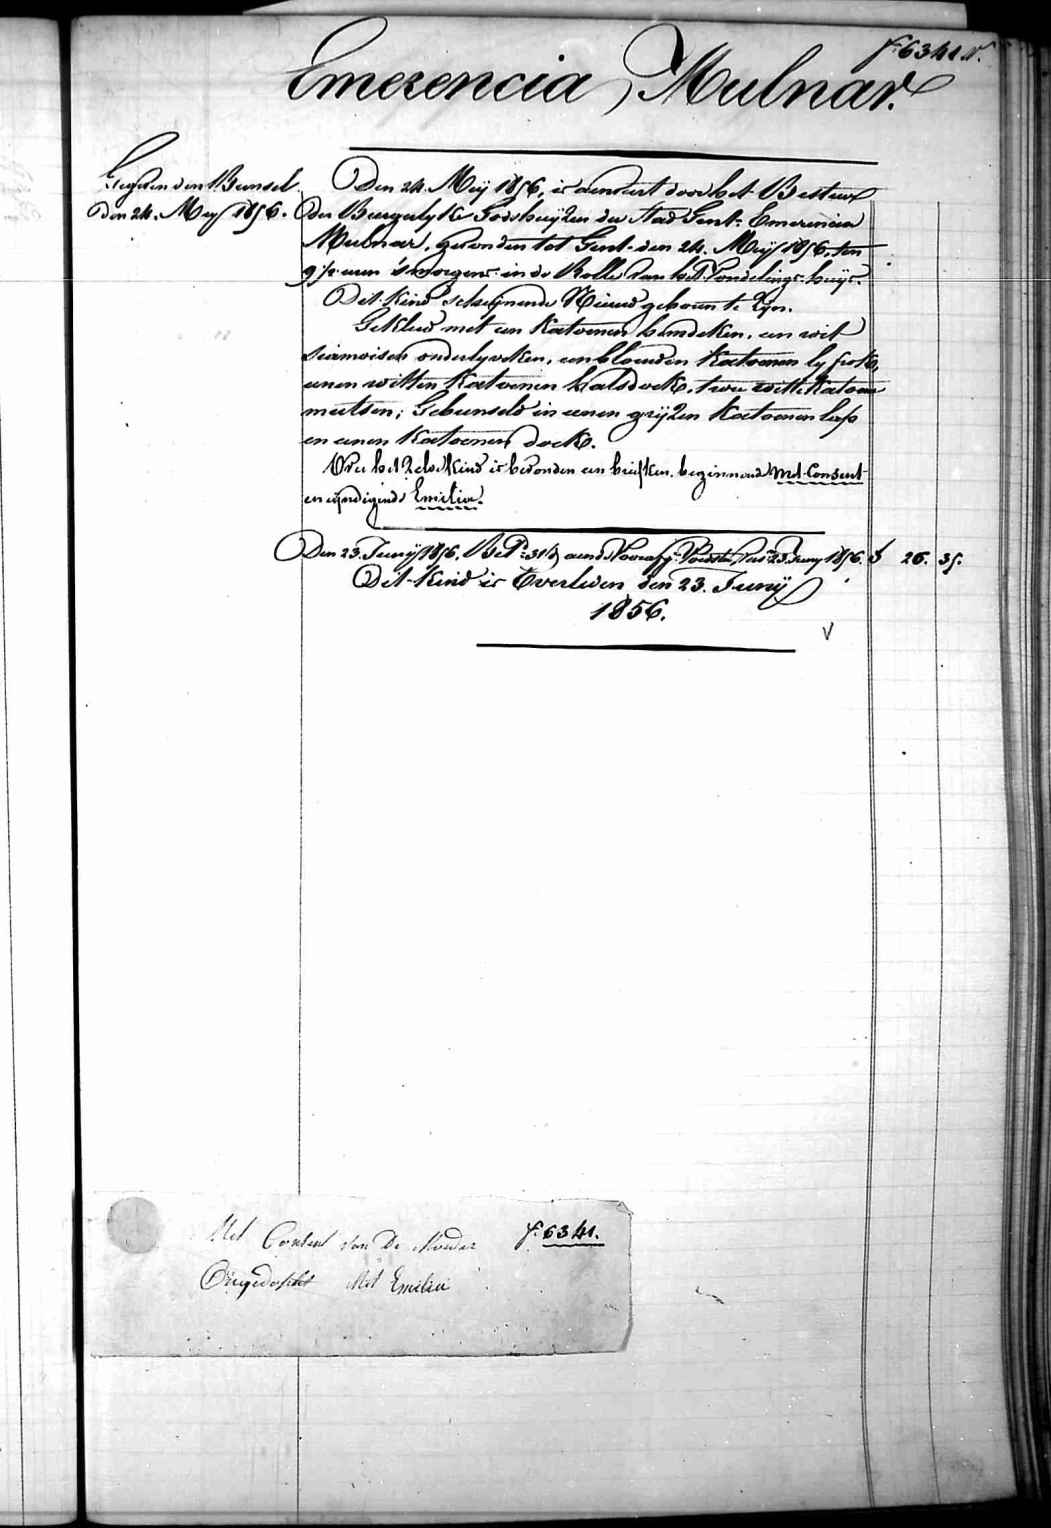 f. 6341. V.
Emerencia Mulnar.
Gegeven den Bunsel
den 24. Meÿ 1856.
Den 24. Meÿ 1856, is aenveert door het Bestuer
der Burgerlyke Godshuÿzen der Stad Gent: Emerencia
Mulnar, gevonden tot Gent den 24. Meÿ 1856, ten
9 ½ uren 's morgens in de Rolle van het Vondelings-huÿs.
Dit Kind scheÿnende Nieuw geboren te Zyn.
Gekleed met een Katoenen hemdeken, een wit
siamoisen onderlyveken, een blauwen Katoenen lyfrok,
eenen witten Katoenen halsdoek, twee witte Katoene
mutsen; Gebunseld in eenen grÿzen Katoenen lap
en eenen Katoenen doek.
Over het Zelve Kind is bevonden een briefken, beginnende Met Consent
en eÿndigende Emelia.
Den 23. Junÿ 1856. 23 Juny 1856. f 26. 35.
Dit Kind is Overleden den 23. Junÿ
1856.
V
Met Consent van De Moeder f. 6341.
Met Emelia